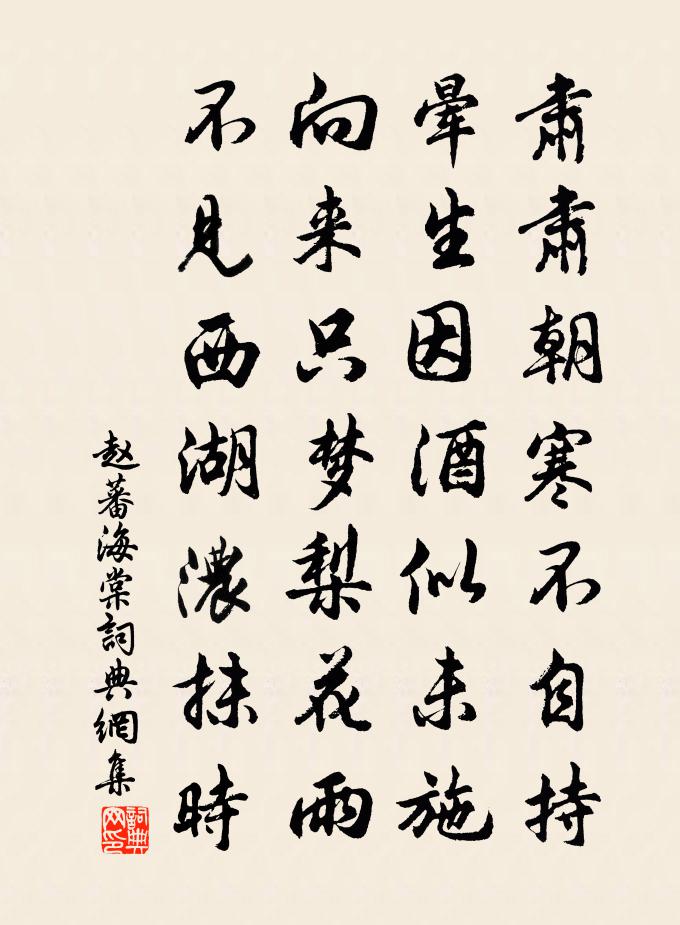 肅肅朝寒不自持
暈生因酒似未施
向来只梦梨花雨
不見西湖濃抹時
赵蕃海棠詞典網集
詞典网印